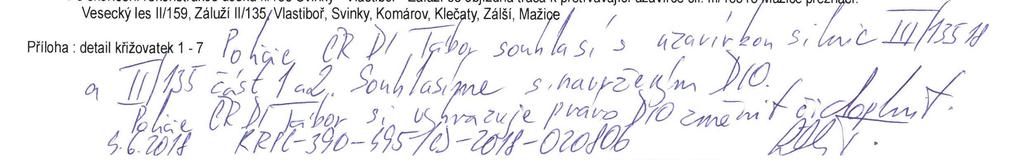 Vesecký les II/159, Záluží II/135, Vlastiboř, Svinky, Komárov, Klečaty, Zálší, Mažice
Příloha : detail křižovatek 1 - 7
Policie ČR DI Tábor souhlasí s uzavírkou silnic III/13518
a II/135 část 1 a 2. Souhlasíme s navrženým DIO.
Policie ČR DI Tábor si vyhrazuje právo DIO změnit či doplnit.
5.6.2018 KRPC-390-495/ČJ-2018-020806